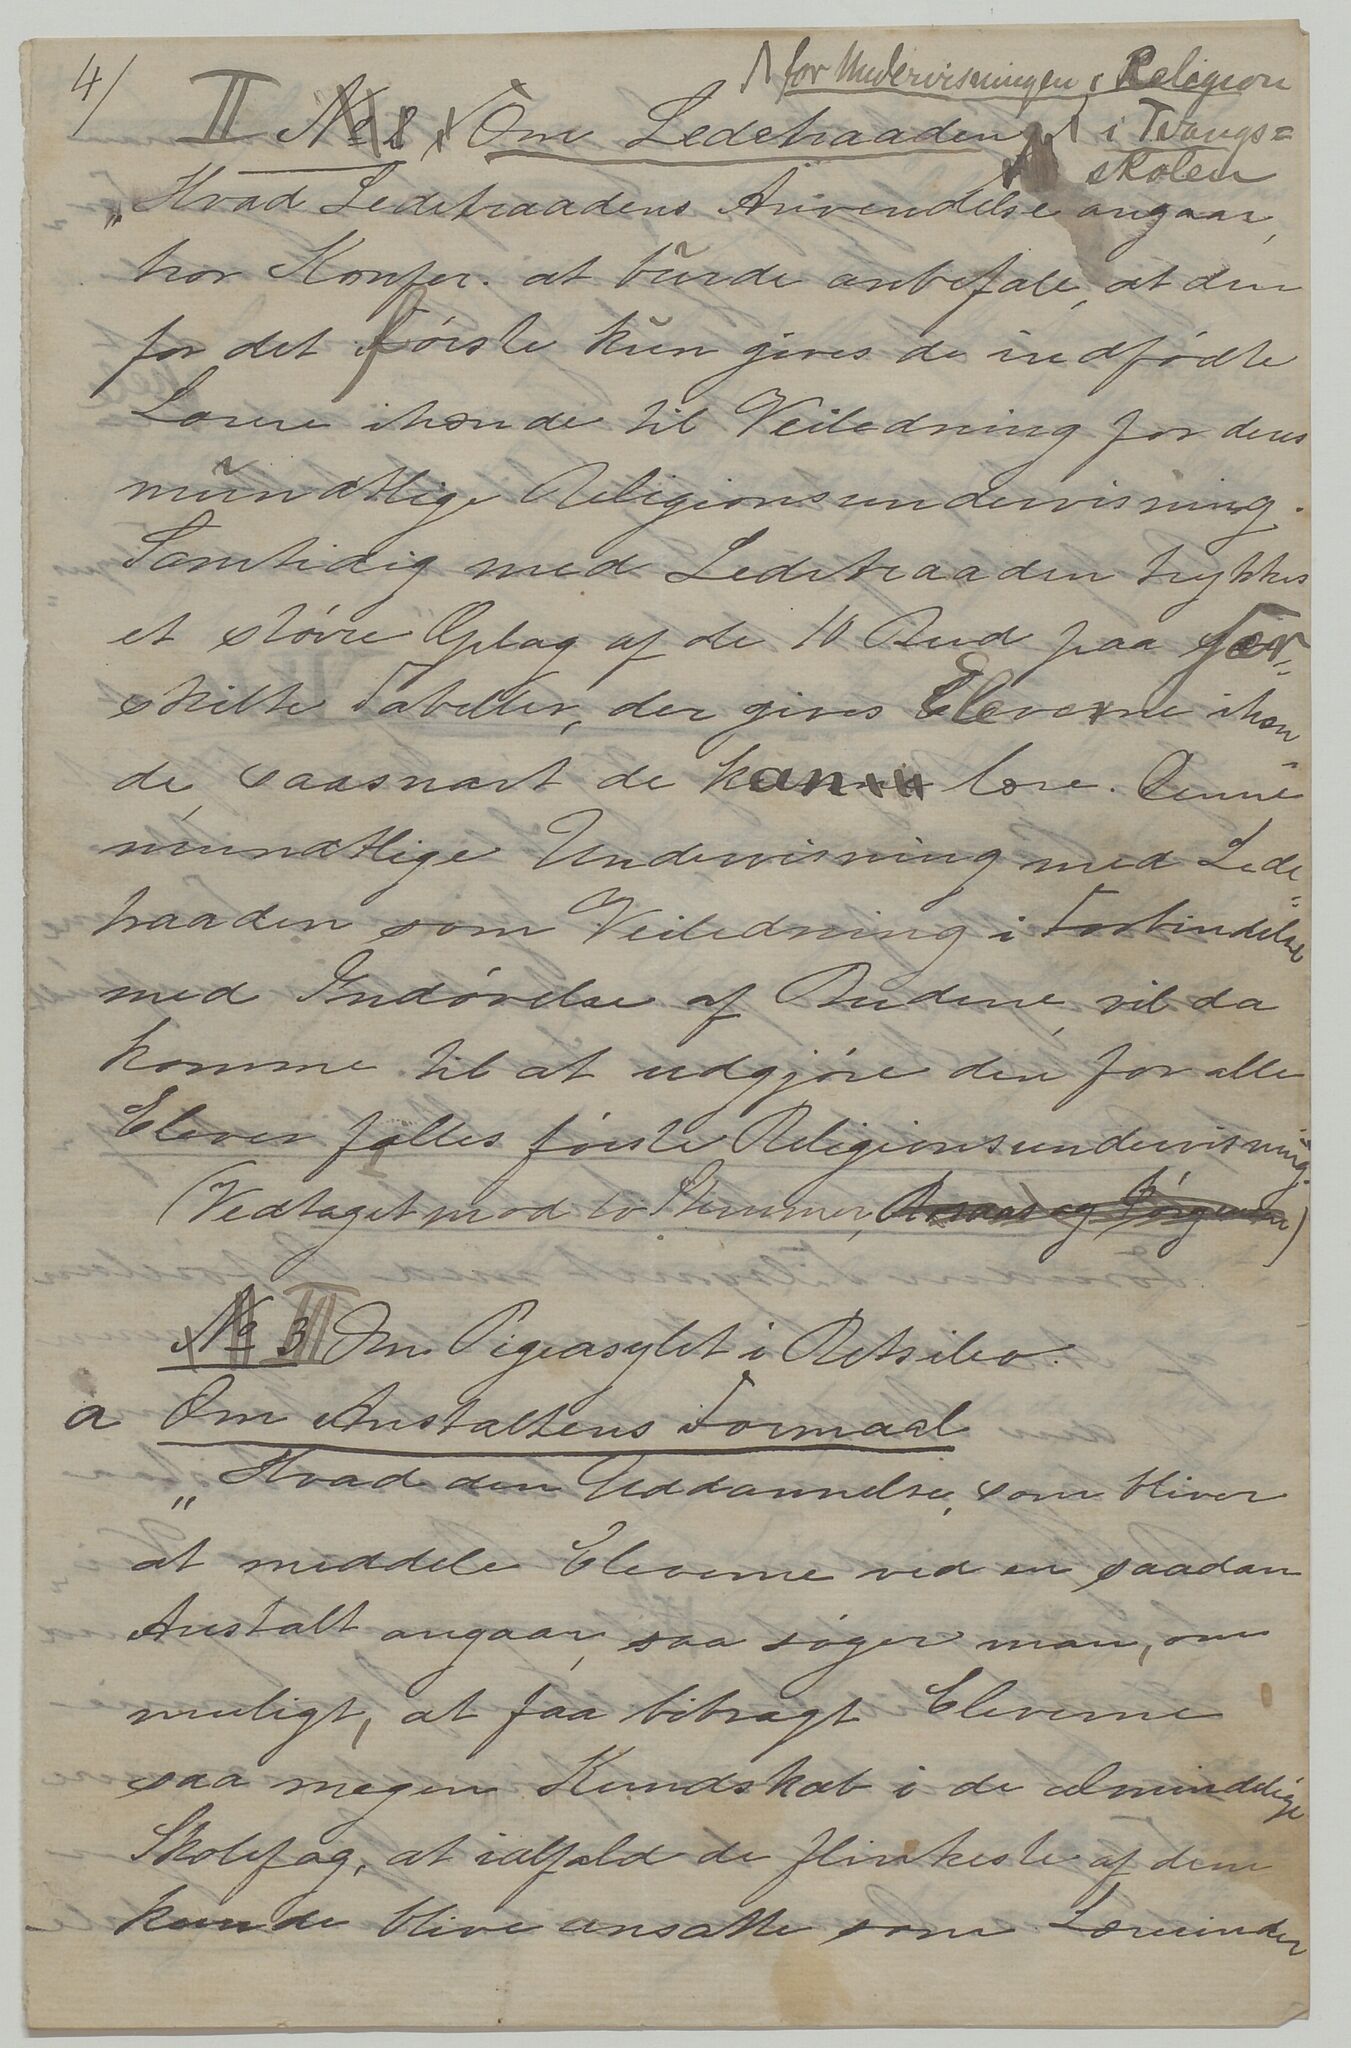 4/
for Undervisningen i Religion
II No 2. Om Ledetraaden i Tvangs=
skolen
"Hvad Ledetraadens Anvendelse angaar,
tror Konfer. at burde anbefale, at den
for det første kun gives de indfødte
Lærere ihænde til Veiledning for deres
mundtlige Religionsundervisning.
Samtidig med Ledetraaden trykkes
et større Oplag af de 10 Bud paa sær-
skilte Tabeller, der gives Eleverne ihæn-
de, saasnart de kan læse. Denne
mundtlige Undervisning med Lede-
traaden som Veiledning i Forbindelse
med Indøvelse af Budene, vil da
komme til at udgjøre den for alle
Elever fælles første Religionsundervisning.
(Vedtaget mod to Stemmer, Rosaas og Jørgensen)
No 3 III Om Pigeasylet i Betsileo.
a Om Anstaltens Formaal
"Hvad den Uddannelse, som bliver
at meddele Eleverne ved en saadan
Anstalt angaar, saa søger man, om
muligt, at faa bibragt Eleverne
saa megen Kundskab i de almindelige
Skolefag, at ialfald de flinkeste af dem
kunde blive ansatte som Lærerinder